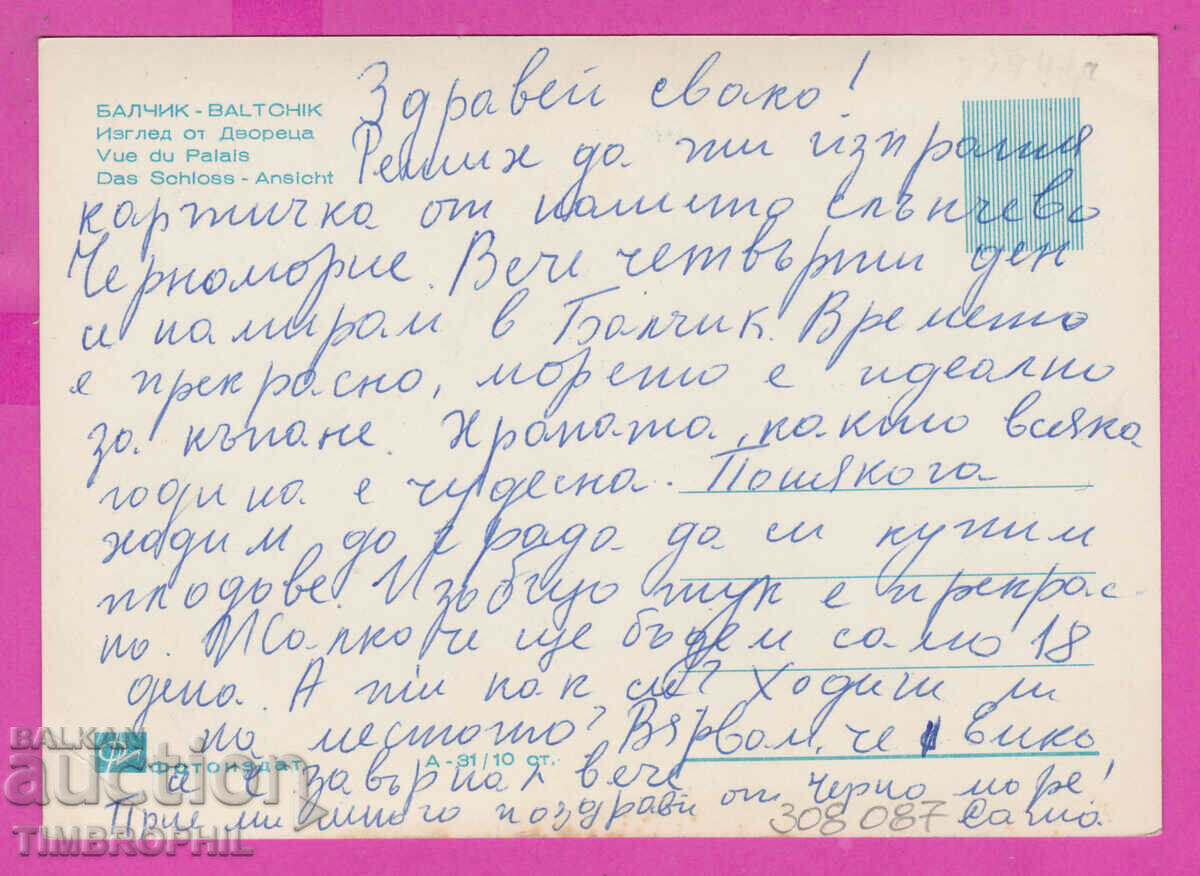 Здравей свако!
БАЛЧИК - BALTCHIK
Изглед от Двореца
Vue du Palais
Das Schloss - Ansicht
Реших да ти изпратя
картичка от нашето слънчево
Черноморие. Вече четвърти ден
се намирам в Балчик. Времето
е прекрасно, морето е идеално
за къпане. Храната, както всяка
година е чудесна. Понякога
ходим до града да си купим
плодове. Изобщо тук е прекрас-
но. Жалко че ще бъдем само 18
дена. А ти как си? Ходиш ли
на местото? Вярвам, че
се е завърнал вече
Фотоиздат
А-31/10 ст.
Приеми много поздрави от черно море!
308 087
BALKAN
auction
TIMBROPHIL